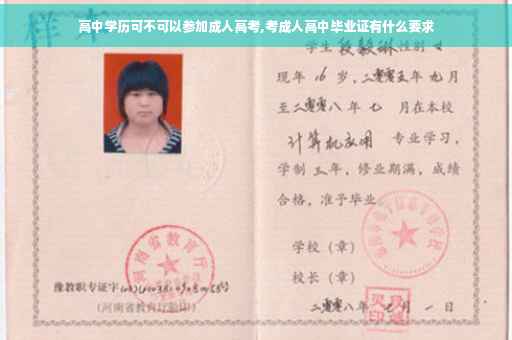 高中学历可不可以参加成人高考,考成人高中毕业证有什么要求
样本
学生 段毅琳 性别 女
现年 16 岁，二零零五年 九月
至二零零八年 七 月在本校
计算机应用 专业学习，
学制 三 年，修业期满，成绩
合格，准予毕业
学校（章）
校长（章）
二零零八年 七 月 一 日
河南省教育厅
豫教职专证字
（河南省教育厅验印）